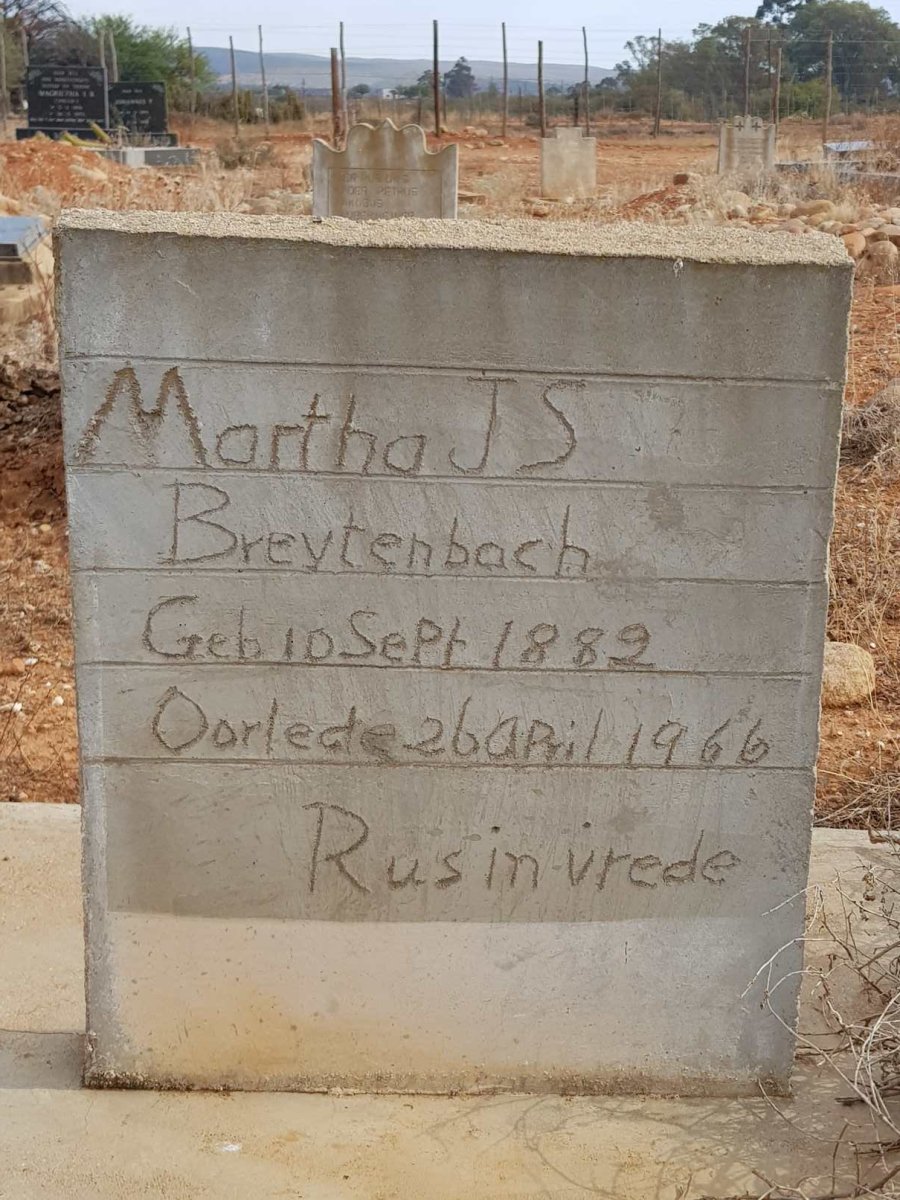 MAGRIETHA J S
JOHANNES P.
PETRUS
Martha J S
Breytenbach
Geb 10 Sept 1882
Oorlede 26 april 1966
Rus in vrede